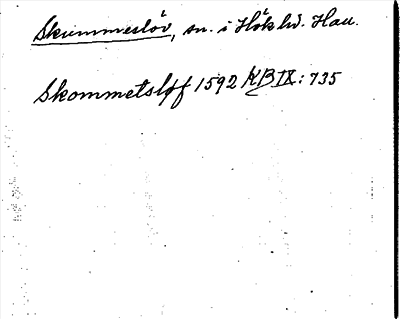 Skummeslöv, sn. i Höks hd. Hall.
Skommetsløf 1592 KB IX: 735